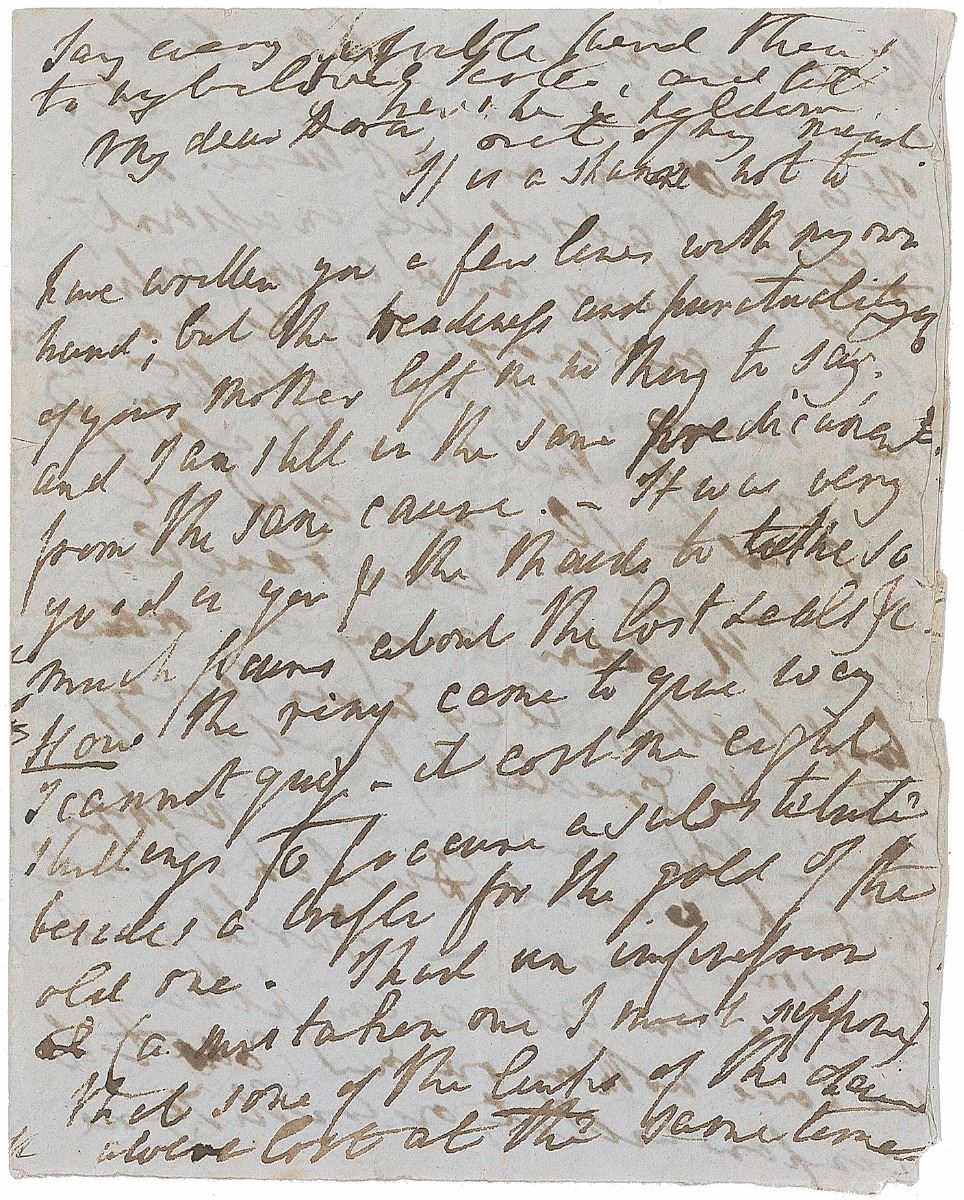 Say every possible kind thing
to my beloved Sister, and let
her, he is seldom
My dear Dora, out of my mind.
It is a shame not to
have written you a few lines with my own
hand; but the readiness and punctuality
of your Mother left me nothing to say.
and I am still in the same predicament
from the same cause. – It was very
good in you & the Maids to take so
much pains about the lost seals &c.
How the ring came to give way
I cannot guess – it cost me eight
shillings to procure a substitute
besides a trifle for the gold of the
old one. I had an impression
(a mistaken one I must suppose)
that some of the links of the chain
were lost at the same time